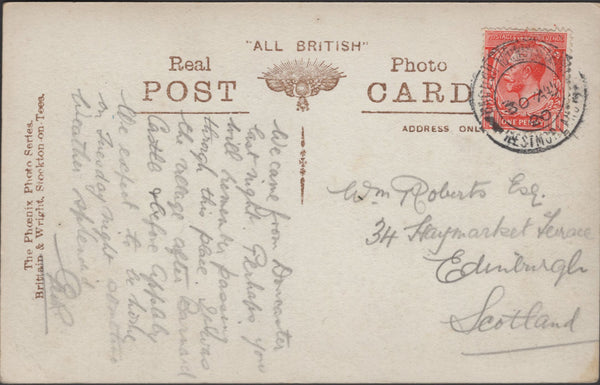 "ALL BRITISH"
Real Photo
POST CARD
ADDRESS ONLY
ONE PENNY
30 AU
WESTMO
The Phœnix Photo Series.
Brittain & Wright, Stockton-on-Tees.
We came from Doncaster
last night. Perhaps you
will remember passing
through this place. It was
the village after Barnard
Castle & before Appleby
We expect to be home
on Tuesday night sometime
Weather splendid
Wm Roberts Esq.
34 Haymarket Terrace
Edinburgh
Scotland